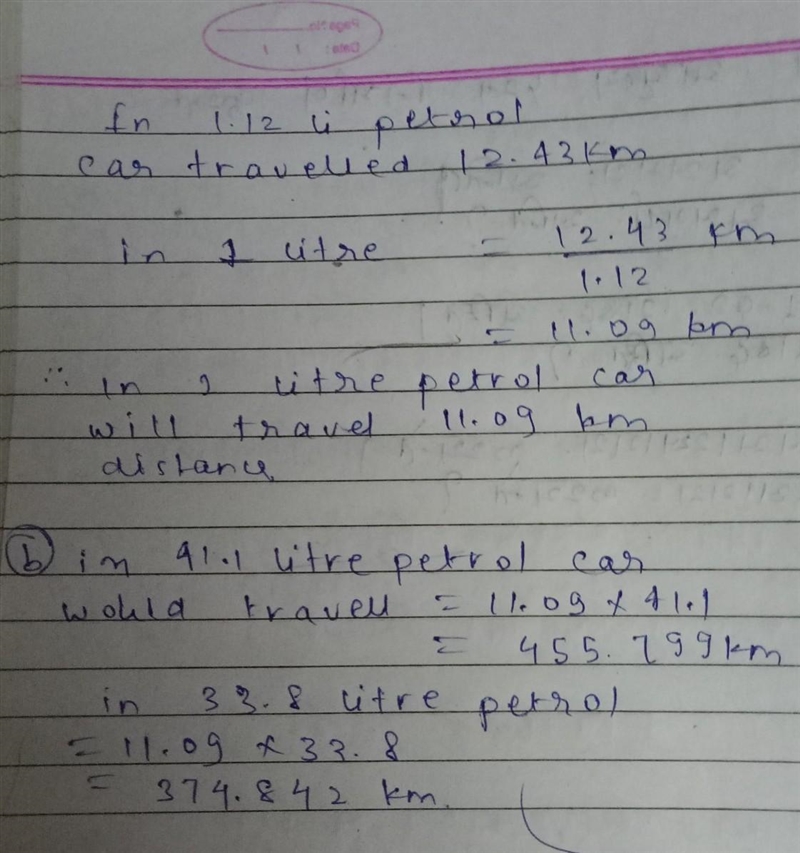 Page No.
Date: / /
In 1.12 li petrol
car travelled 12.43 km
in 1 litre = 12.43 km
1.12
= 11.09 km
∴ In 1 litre petrol car
will travel 11.09 km
distance
(b) in 41.1 litre petrol car
would travell = 11.09 × 41.1
= 455.799 km
in 33.8 litre petrol
= 11.09 × 33.8
= 374.842 km.